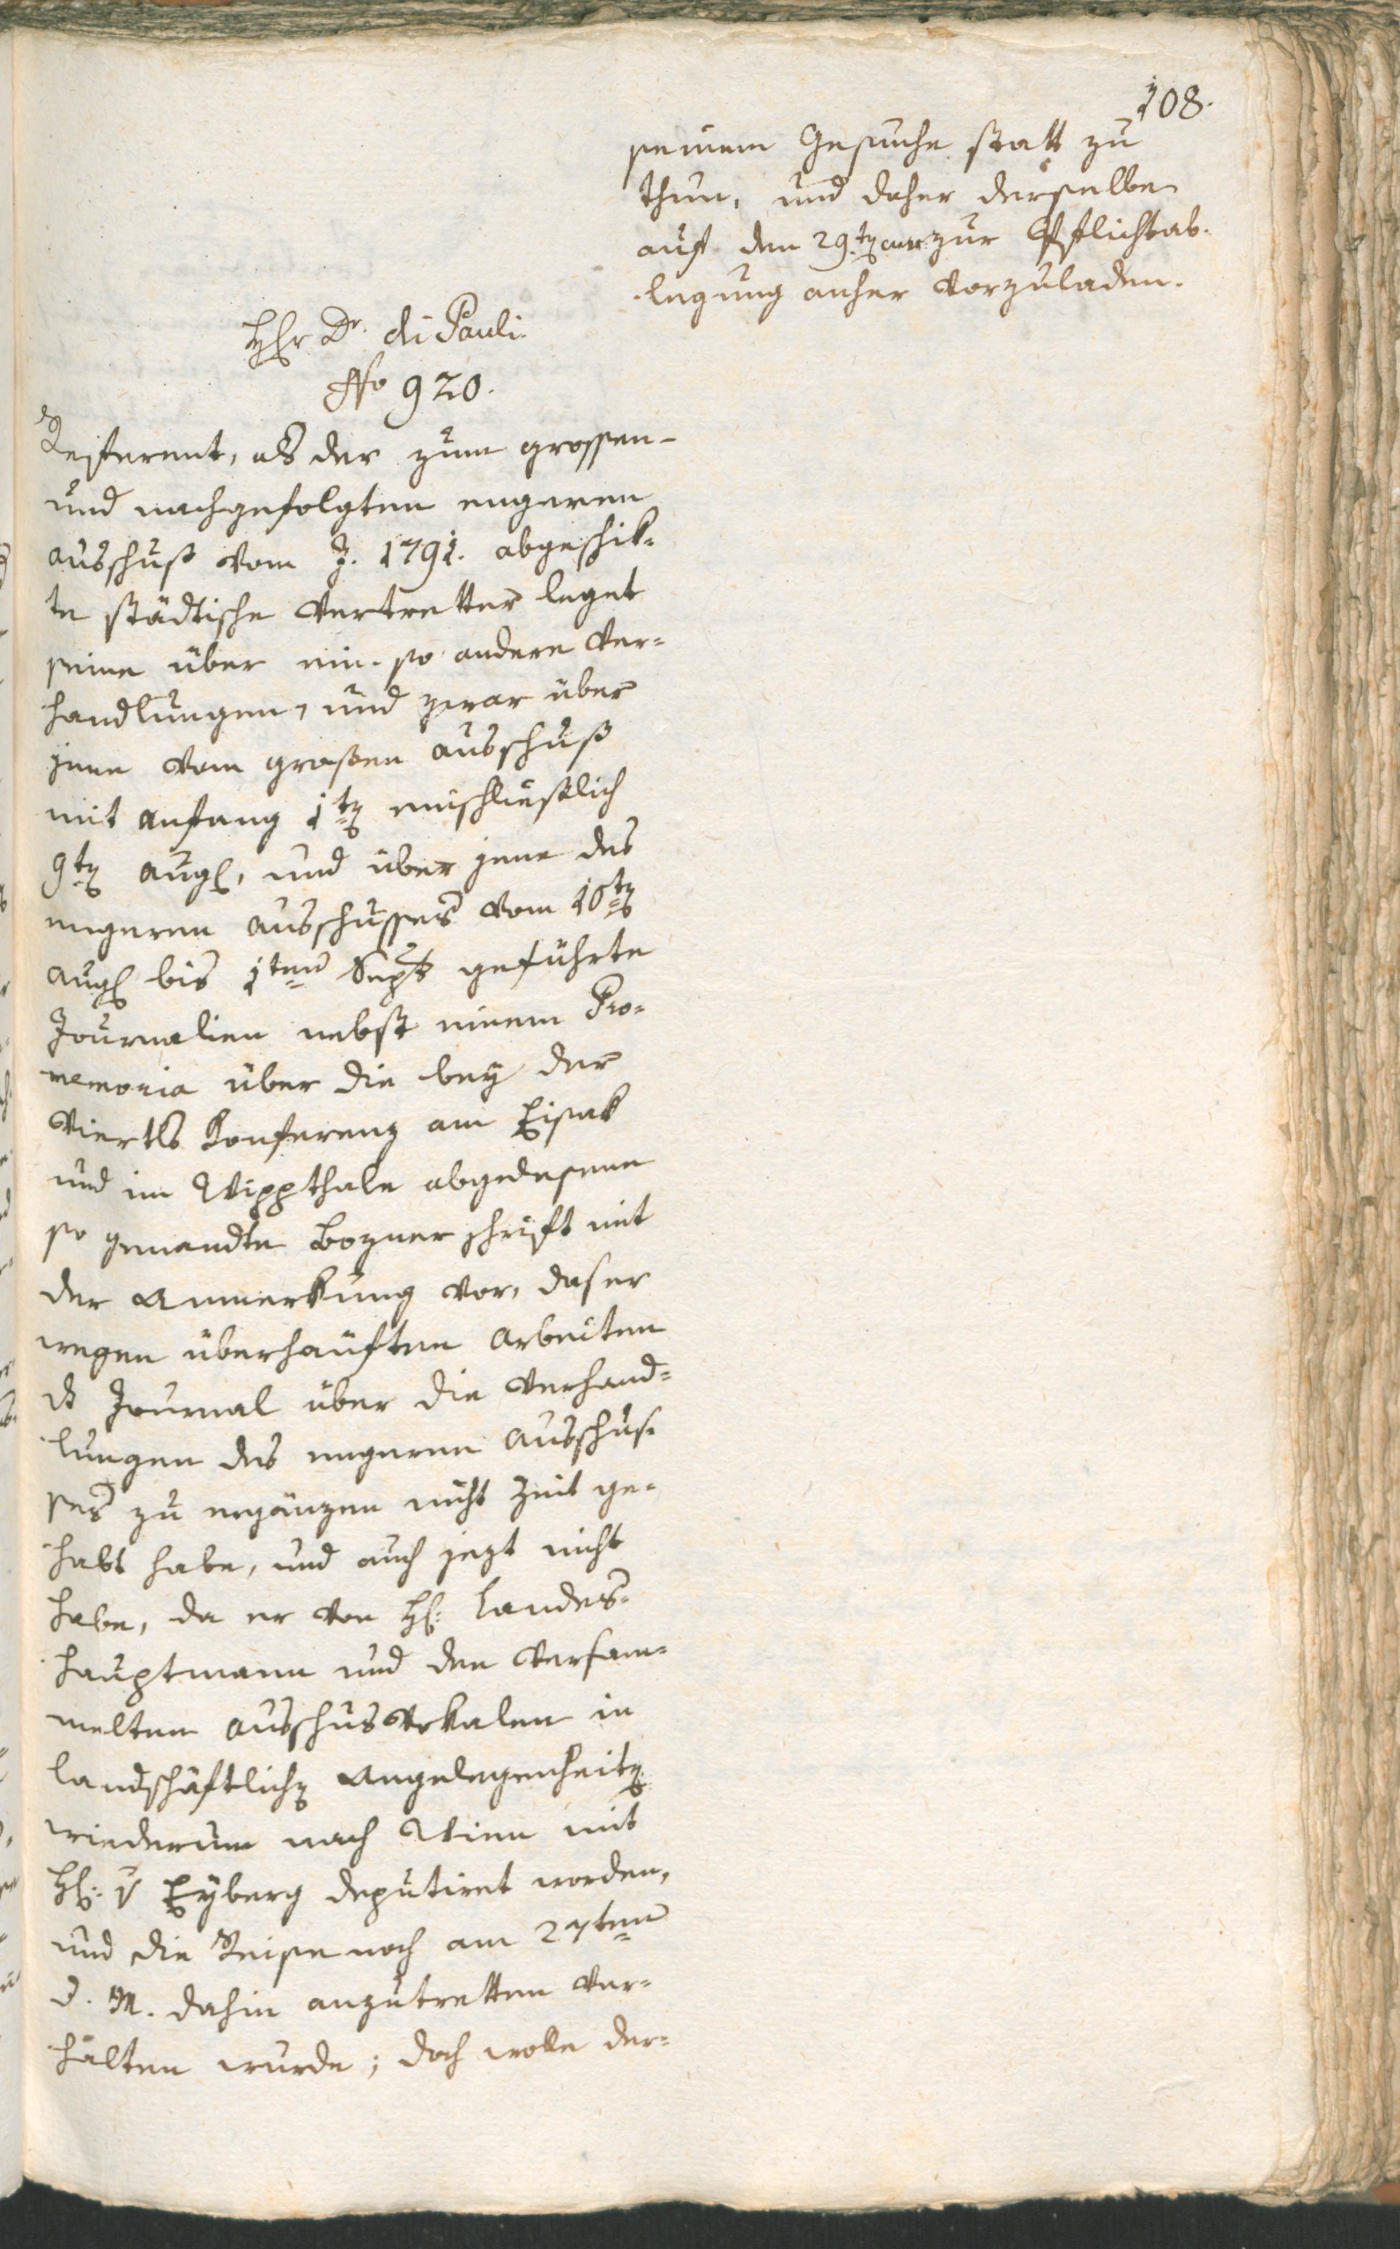 108.
seinem Gesuche statt zu
thun, und daher derselbe
auf den 29.ten curr zur Pflichtab-
legung anher vorzuladen.
Hr Dr. di Pauli
No 920.
Referent, als der zum grossen-
und nachgefolgten engeren
Ausschuß vom J. 1791. abgeschik-
te städtische Vertretter leget
seine über ein- so andere Ver-
handlungen, und zwar über
jene vom großen Ausschuß
mit Anfang 1ten einschlüeßlich
9ten Aug, und über jene des
engeren Ausschusses vom 10ten
Aug bis 1ten Sept geführte
Journalien nebst einem Pro-
memoria über die bey der
Viertls Konferenz am Eisak
und im Wippthale abgelesene
so genandte Bozner schrift mit
der Anmerkung vor, daß er
wegen überhäuften Arbeiten
ds Journal über die Verhand-
lungen des engeren Ausschus-
ses zu ergänzen nicht Zeit ge-
habt habe, und auch jezt nicht
habe, da er von H: Landes-
hauptmann und den versam-
melten Ausschus Vokalen in
landschäftlichen Angelegenheiten
wiederum nach Wien mit
H: v Eyberg deputiret worden,
und die Reise noch am 27ten
d. M. dahin anzutretten ver-
halten wurde; doch wolle der-